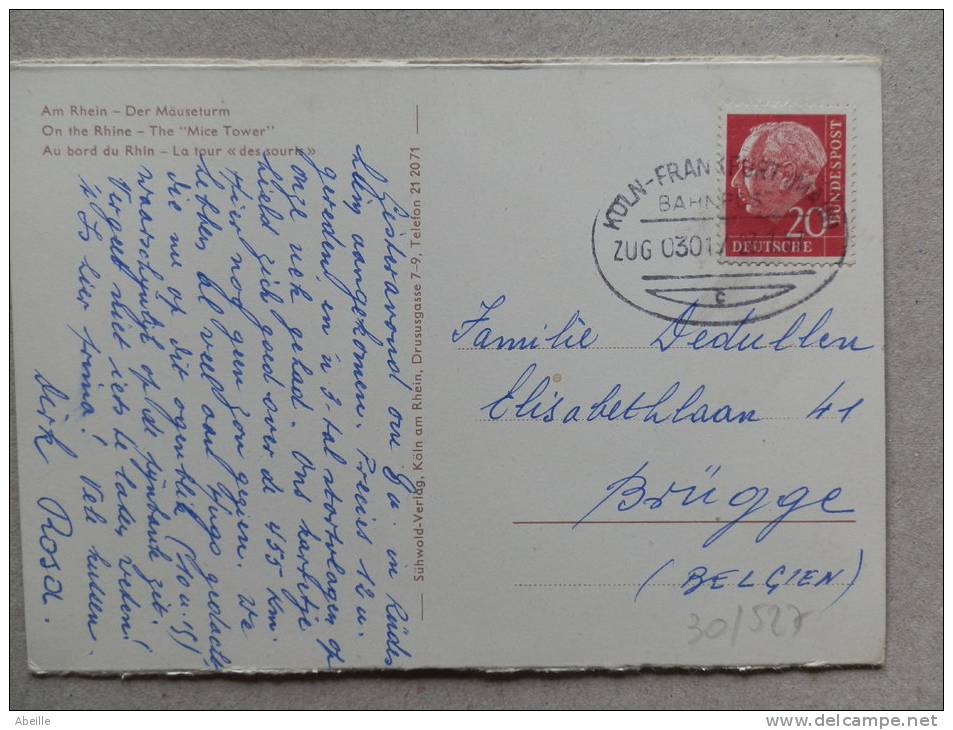 Am Rhein – Der Mäuseturm
On the Rhine – The "Mice Tower"
Au bord du Rhin – La tour « des souris »
Gisteravond om 9u. in Rüdes
heim aangekomen. Preuss 12 u.
gereden, en n 3-tal stortvlagen op
onze nek gehad. Ons karretje
hield zich goed over de 455 km.
Hier nog geen zon gezien. We
hebben al veel aan Jings gedacht
die nu op dit ogenblik (10 u. 15)
waarschijnlijk op de pijnbank zit.
Vergeet niet iets te laten weten!
't Is hier prima! Vele kussen
Dirk Rosa.
Sühwold-Verlag, Köln am Rhein, Drususgasse 7–9, Telefon 21 20 71
KÖLN-FRANKFURT
BAHNPOS
ZUG 0301
c
20
DEUTSCHE
BUNDESPOST
Familie Dedullen
Elisabethlaan 41
Brügge
(BELGIEN)
30/527
Abeille
www.delcampe.net